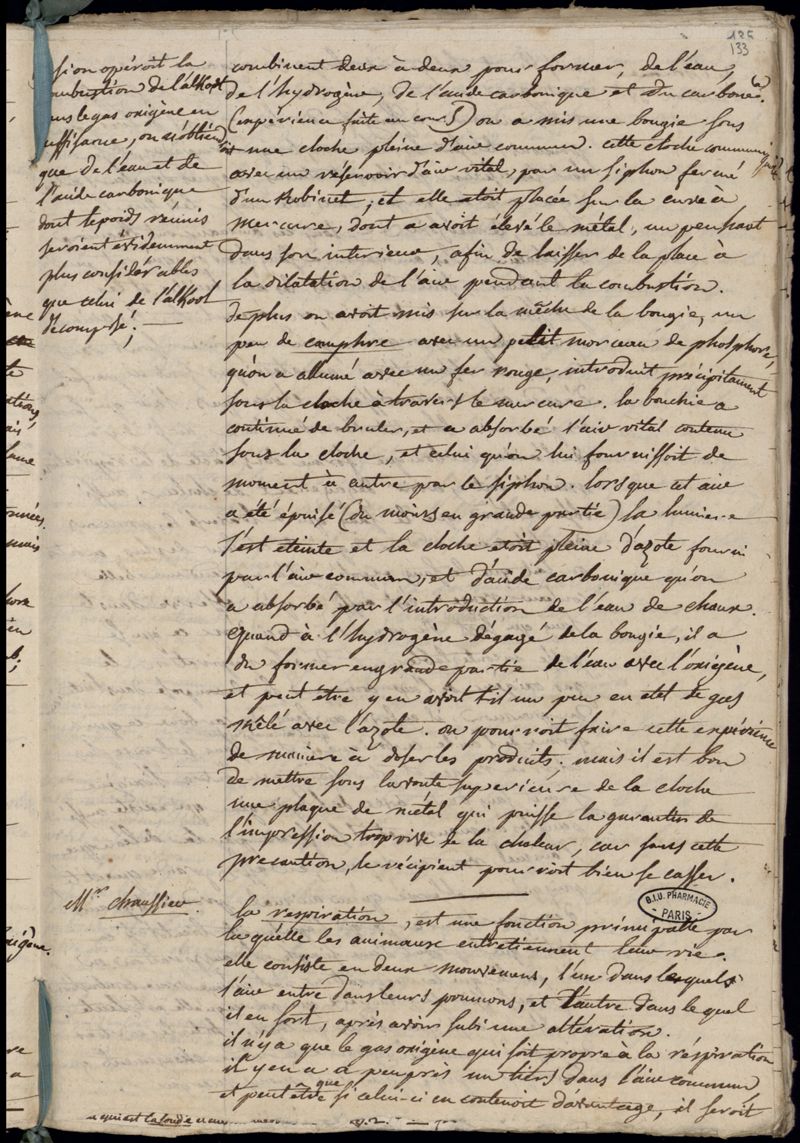 126
133
sion opéroit la
combustion de l'alkool
dans le gas oxigène en
suffisance, on n'obtiendroit
que de l'eau et de
l'acide carbonique
dont le poids réunis
seroient évidemment
plus considérables
que celui de l'alkool
décomposé; —
combinent deux à deux pour former, de l'eau,
de l'hydrogène, de l'acide carbonique et du carbone.
(expérience faite en cours) on a mis une bougie sous
une cloche pleine d'air commun. cette cloche communiquoit
avec un réservoir d'air vital, par un siphon fermé
d'un Robinet, et elle etoit placée sur la cuve à
mercure, dont a avoit élevé le métal, un peu haut
dans son interieur, afin de laisser de la place à
la dilatation de l'air pendant la combustion.
de plus on avoit mis sur la mêche de la bougie, un
peu de camphre avec un petit morceau de phosphore,
qu'on a allumé avec un fer rouge, introduit précipitament
sous la cloche à travers le mercure. la bouchie a
continué de bruler, et a absorbé l'air vital contenu
sous la cloche, et celui qu'on lui fournissoit de
moment à autre par le siphon. lorsque cet air
a été épuisé (du moins en grande partie) la lumiere
s'est eteinte et la cloche etoit pleine d'azote fourni
par l'air commun, et d'acide carbonique qu'on
a absorbé par l'introduction de l'eau de chaux.
quand à l'hydrogène dégagé de la bougie, il a
du former en grande partie de l'eau avec l'oxigène,
et peut être y en avoit t-il un peu en etat de gas
mêlé avec l'azote. on pourroit faire cette expérience
de maniere à doser les produits. mais il est bon
de mettre sous la voute superieure de la cloche
une plaque de metal qui puisse la garantir de
l'impression trop vive de la chaleur, car sans cette
precaution, le récipient pourroit bien se casser.
Mr. chaussier.
B.I.U. PHARMACIE
PARIS
la respiration, est une fonction principalle par
la quelle les animaux entretiennent leur vie.
elle consiste en deux mouvemens, l'un dans lesquels
l'air entre dans leurs poumons, et l'autre dans le quel
il en sort, après avoir subi une altération.
il n'y a que le gas oxigène qui soit propre à la réspiration
il y en a a peu près un tiers dans l'air commun
et peut être que si celui-ci en contenoit d'avantage, il seroit